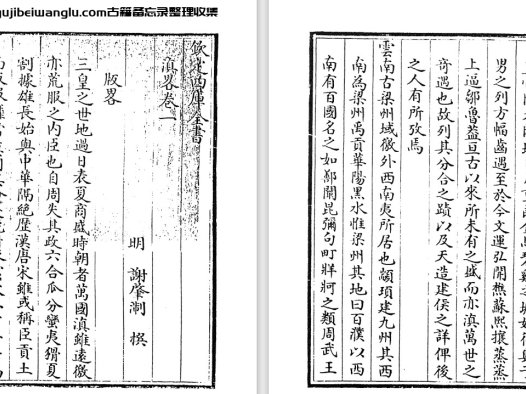 ujibeiwanglu.com古籍备忘录整理收集
欽定四庫全書
滇畧卷一
明 謝肇淛 撰
版畧
三皇之世地過日表夏商盛時朝者萬國滇雖遠徼
亦荒服之內臣也自周失其政六合瓜分蠻夷猾夏
割據雄長始與中華隔絕歷漢唐宋雖或稱臣貢土
男之列方幅齒遇至於今文運弘開蘇熙攘蒸蒸
上逼鄒魯蓋亘古以來所未有之盛而亦滇萬世之
奇遇也故列其分合之蹟以及天造建侯之詳俾後
之人有所攷焉
雲南古梁州域徼外西南夷所居也顓頊建九州其西
南為梁州禹貢華陽黑水惟梁州其地曰百濮以西
南有百國名之如鄢闍昆彌句町牂牁之類周武王